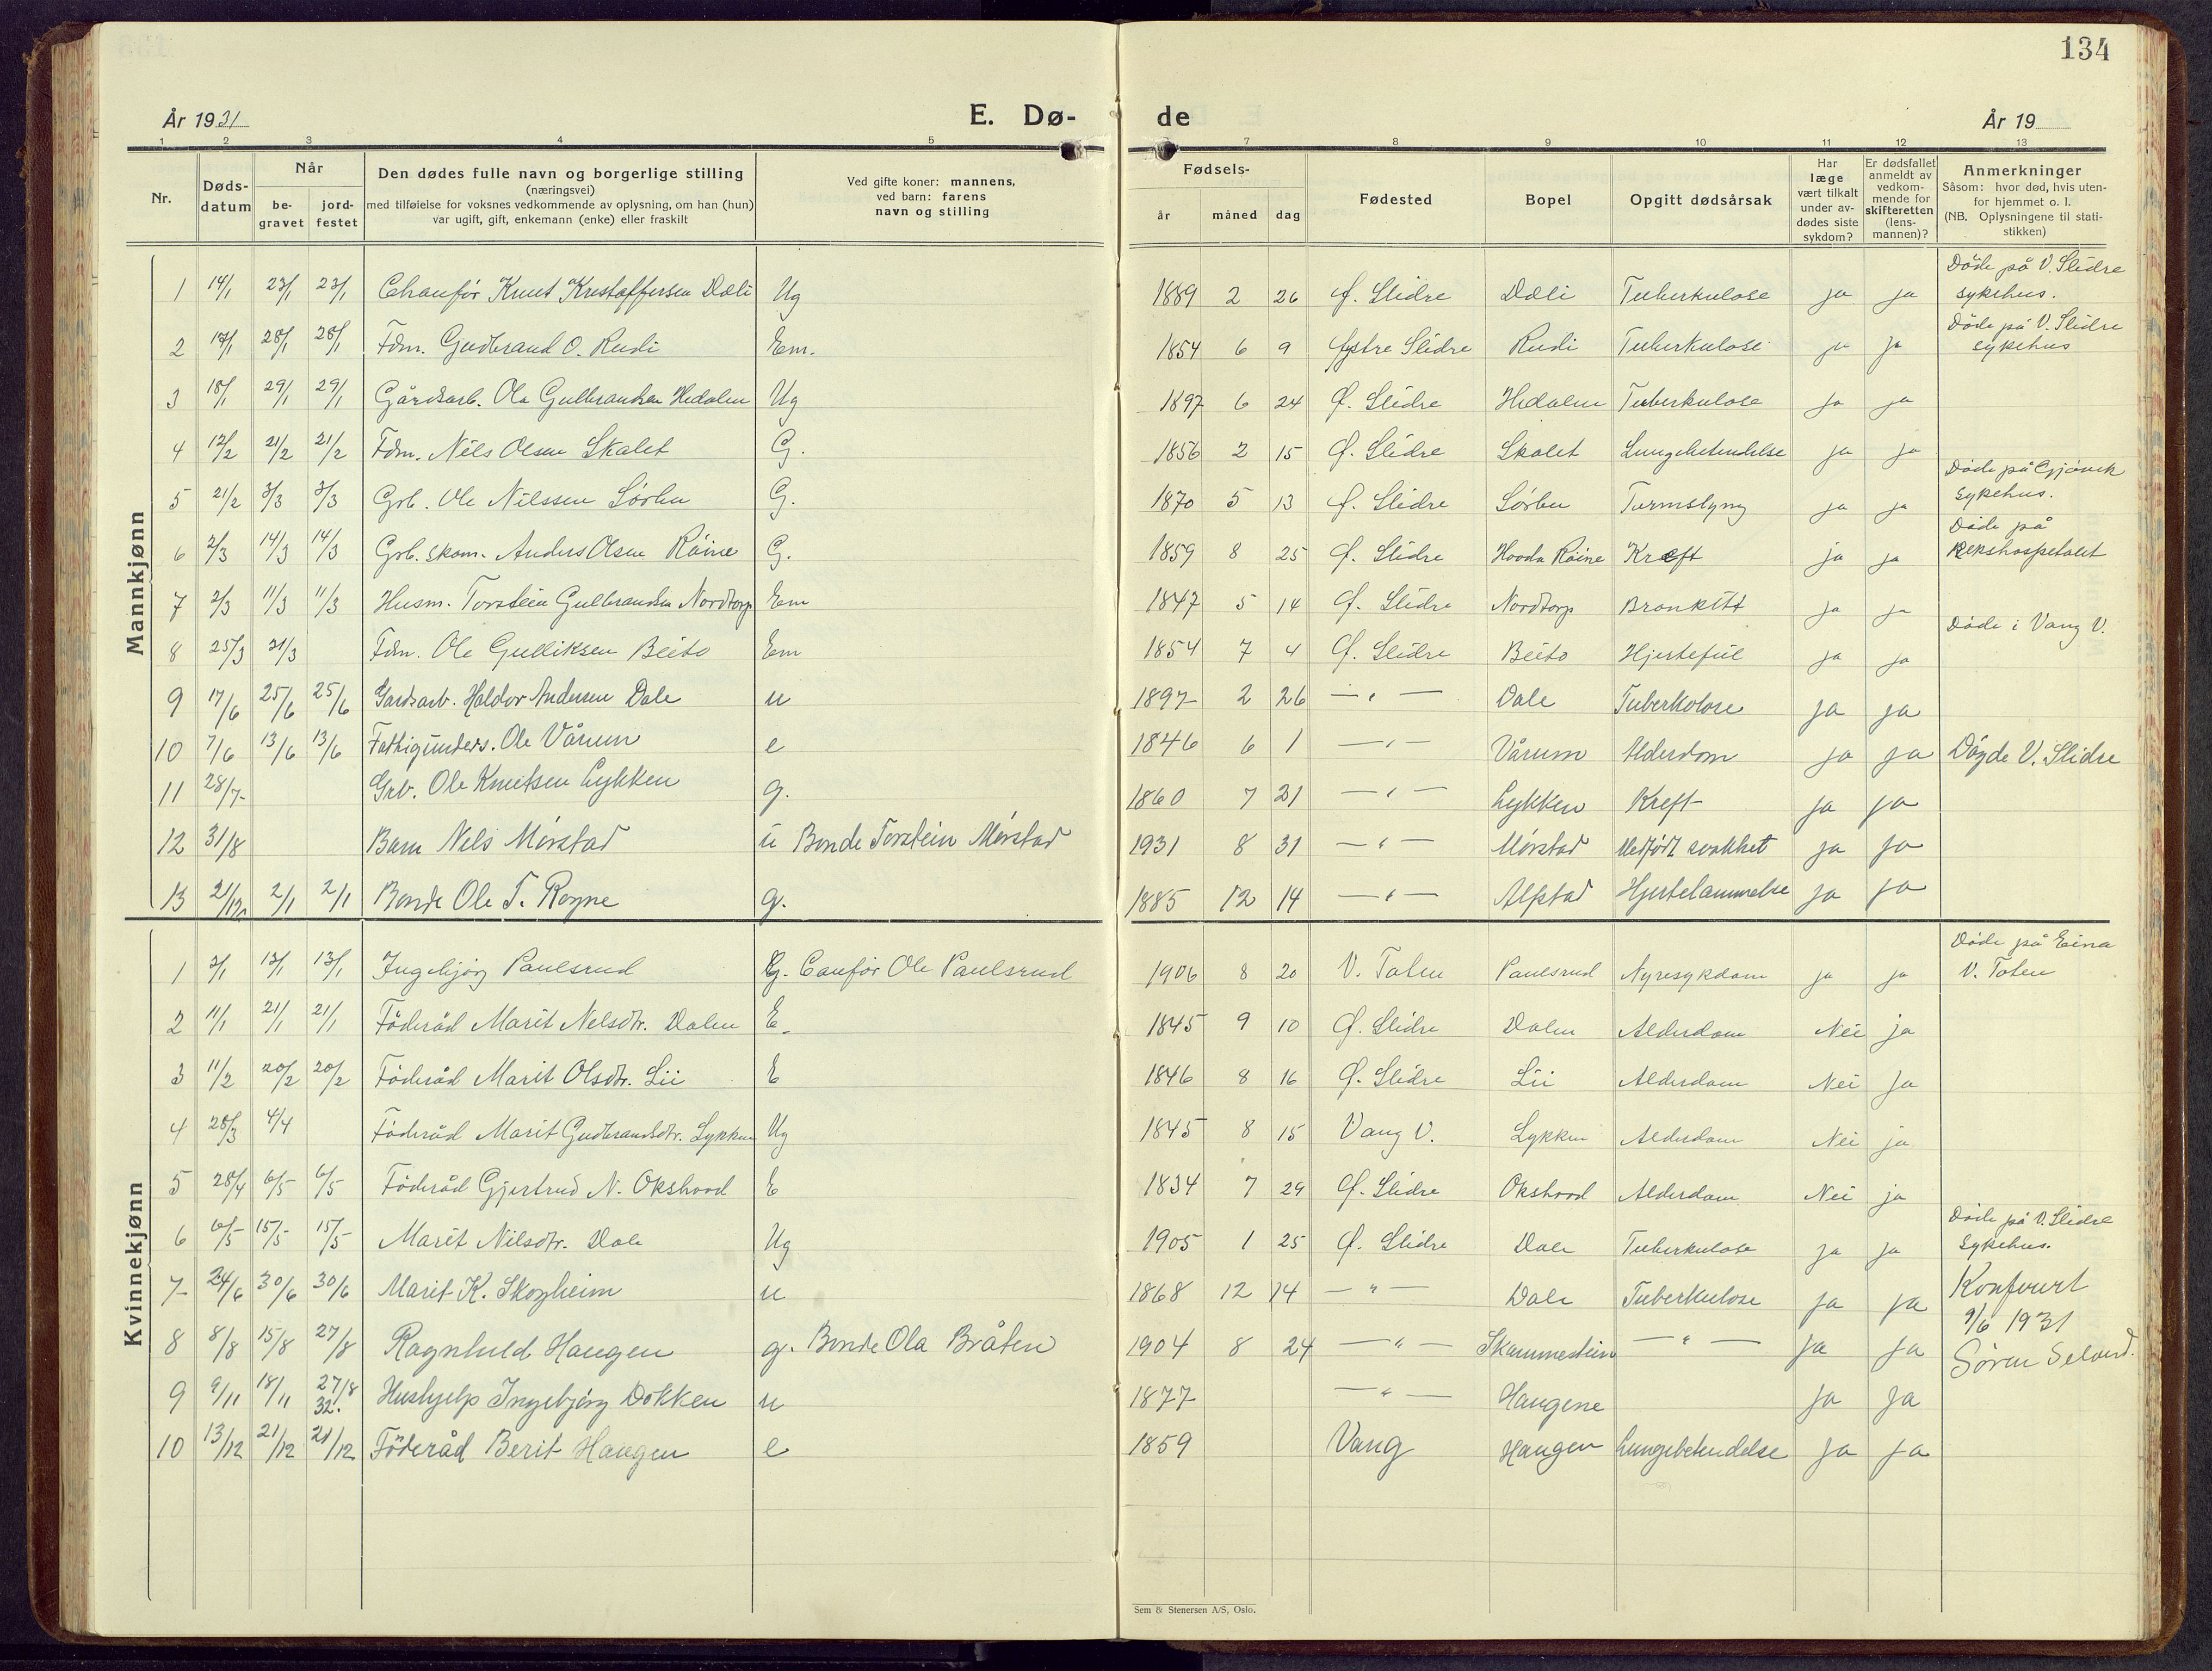 134
År 1931
E. Dø-
de
År 19
1 2 3 4 5 7 8 9 10 11 12 13
Nr.
Døds-
datum
Når
be-
gravet
jord-
festet
Den dødes fulle navn og borgerlige stilling
(næringsvei)
med tilføielse for voksnes vedkommende av oplysning, om han (hun)
var ugift, gift, enkemann (enke) eller fraskilt
Ved gifte koner: mannens,
ved barn: farens
navn og stilling
Fødsels-
år måned dag
Fødested
Bopel
Opgitt dødsårsak
Har
læge
vært tilkalt
under av-
dødes siste
sykdom?
Er dødsfallet
anmeldt av
vedkom-
mende for
skifteretten
(lens-
mannen)?
Anmerkninger
Såsom: hvor død, hvis uten-
for hjemmet o. l.
(NB. Oplysningene til stati-
stikken)
Mannkjønn
1 14/1 23/1 23/1 Chauför Knut Kristoffersen Döli Ug 1889 2 26 Ø. Slidre Döli Tuberkulose ja ja Döde på V. Slidre sykehus.
2 17/1 28/1 28/1 Fdm. Gudbrand O. Rudi Em. 1854 6 9 Østre Slidre Rudi Tuberkulose ja ja Döde på V. Slidre sykehus
3 18/1 29/1 29/1 Gårdsarb. Ola Gulbrandsen Hedalen Ug 1897 6 24 Ø. Slidre Hedalen Tuberkulose ja ja
4 12/2 21/2 21/2 Fdm. Nils Olsen Skalet G. 1856 2 15 Ø. Slidre Skalet Lungebetendelse ja ja
5 21/2 3/3 3/3 Grb. Ole Nilssen Sörbu G. 1870 5 13 Ø. Slidre Sörbu Tarmslyng ja ja Döde på Gjövik sykehus.
6 2/3 14/3 14/3 Grb. skom. Anders Olsen Röine G. 1859 8 25 Ø. Slidre Hovda Röine Kræft ja ja Döde på Rikshospitalet
7 2/3 11/3 11/3 Husm. Torstein Gulbrandsen Nordtorp Em 1847 5 14 Ø. Slidre Nordtorp Bronkitt ja ja
8 25/3 31/3 Fdm. Ole Gulliksen Beito Em 1854 7 4 Ø. Slidre Beito Hjertefeil ja ja Döde i Vang V.
9 17/6 25/6 25/6 Gardsarb. Haldor Andersen Dale u 1897 2 26 — " — Dale Tuberkolose ja ja
10 7/6 13/6 13/6 Fattigunders. Ole Vårum e 1846 6 1 — " — Vårum Alderdom ja ja Döyde V. Slidre
11 28/7 Grb. Ole Knutsen Lykken g. 1860 7 21 — " — Lykken Kreft ja ja
12 31/8 Barn Nels Mörstad u Bonde Torstein Mörstad 1931 8 31 — " — Mörstad Medfödt svakhet ja ja
13 21/12 2/1 2/1 Bonde Ole T. Rogne g. 1885 12 14 — " — Alfstad Hjertelammelse ja ja
Kvinnekjønn
1 3/1 13/1 13/1 Ingebjörg Paulsrud G. Cauför Ole Paulsrud 1906 8 20 V. Toten Paulsrud Nyresykdom ja ja Döde på Eina V. Toten
2 11/1 21/1 21/1 Föderåd Marit Nelsdtr. Dalen E. 1845 9 10 Ø. Slidre Dalen Alderdom Nei ja
3 11/2 20/2 20/2 Föderåd Marit Olsdtr. Lii E 1846 8 16 Ø. Slidre Lii Alderdom Nei ja
4 28/3 4/4 Föderåd Marit Gudbrandsdtr. Lykken Ug 1845 8 15 Vang V. Lykken Alderdom Nei ja
5 28/4 6/5 6/5 Föderåd Gjertrud N. Okshovd E 1834 7 29 Ø. Slidre Okshovd Alderdom Nei ja
6 6/5 15/5 15/5 Marit Nilsdtr. Dale Ug 1905 1 25 Ø. Slidre Dale Tuberkulose ja ja Döde på V. Slidre Sykehus.
7 24/6 30/6 30/6 Marit K. Skogheim u 1868 12 14 — " — Dale Tuberkulose ja ja Konferert
8 8/8 15/8 27/8 Ragnhild Haugen g. Bonde Ola Bråten 1904 8 24 — " — Skammestein — " — ja ja 9/6 1931
Sören Seland.
9 9/11 18/11 27/8 32. Hushjelp Ingebjörg Dokken u 1877 — " — Haugene ja ja
10 13/12 21/12 21/12 Föderåd Berit Haugen e 1859 Vang Haugen Lungebetendelse ja ja
Sem & Stenersen A/S, Oslo.